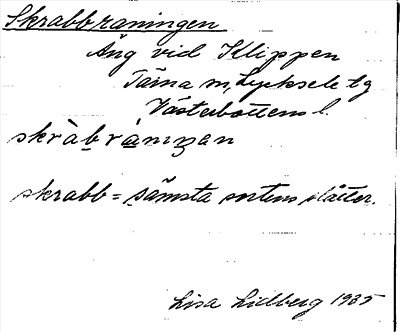 Skrabbraningen
Äng vid Klippen
Tärna sn, Lycksele lg
Västerbottens l.
skràbrániŋen
skrabb = sämsta sortens slåtter.
Lisa Lidberg 1935